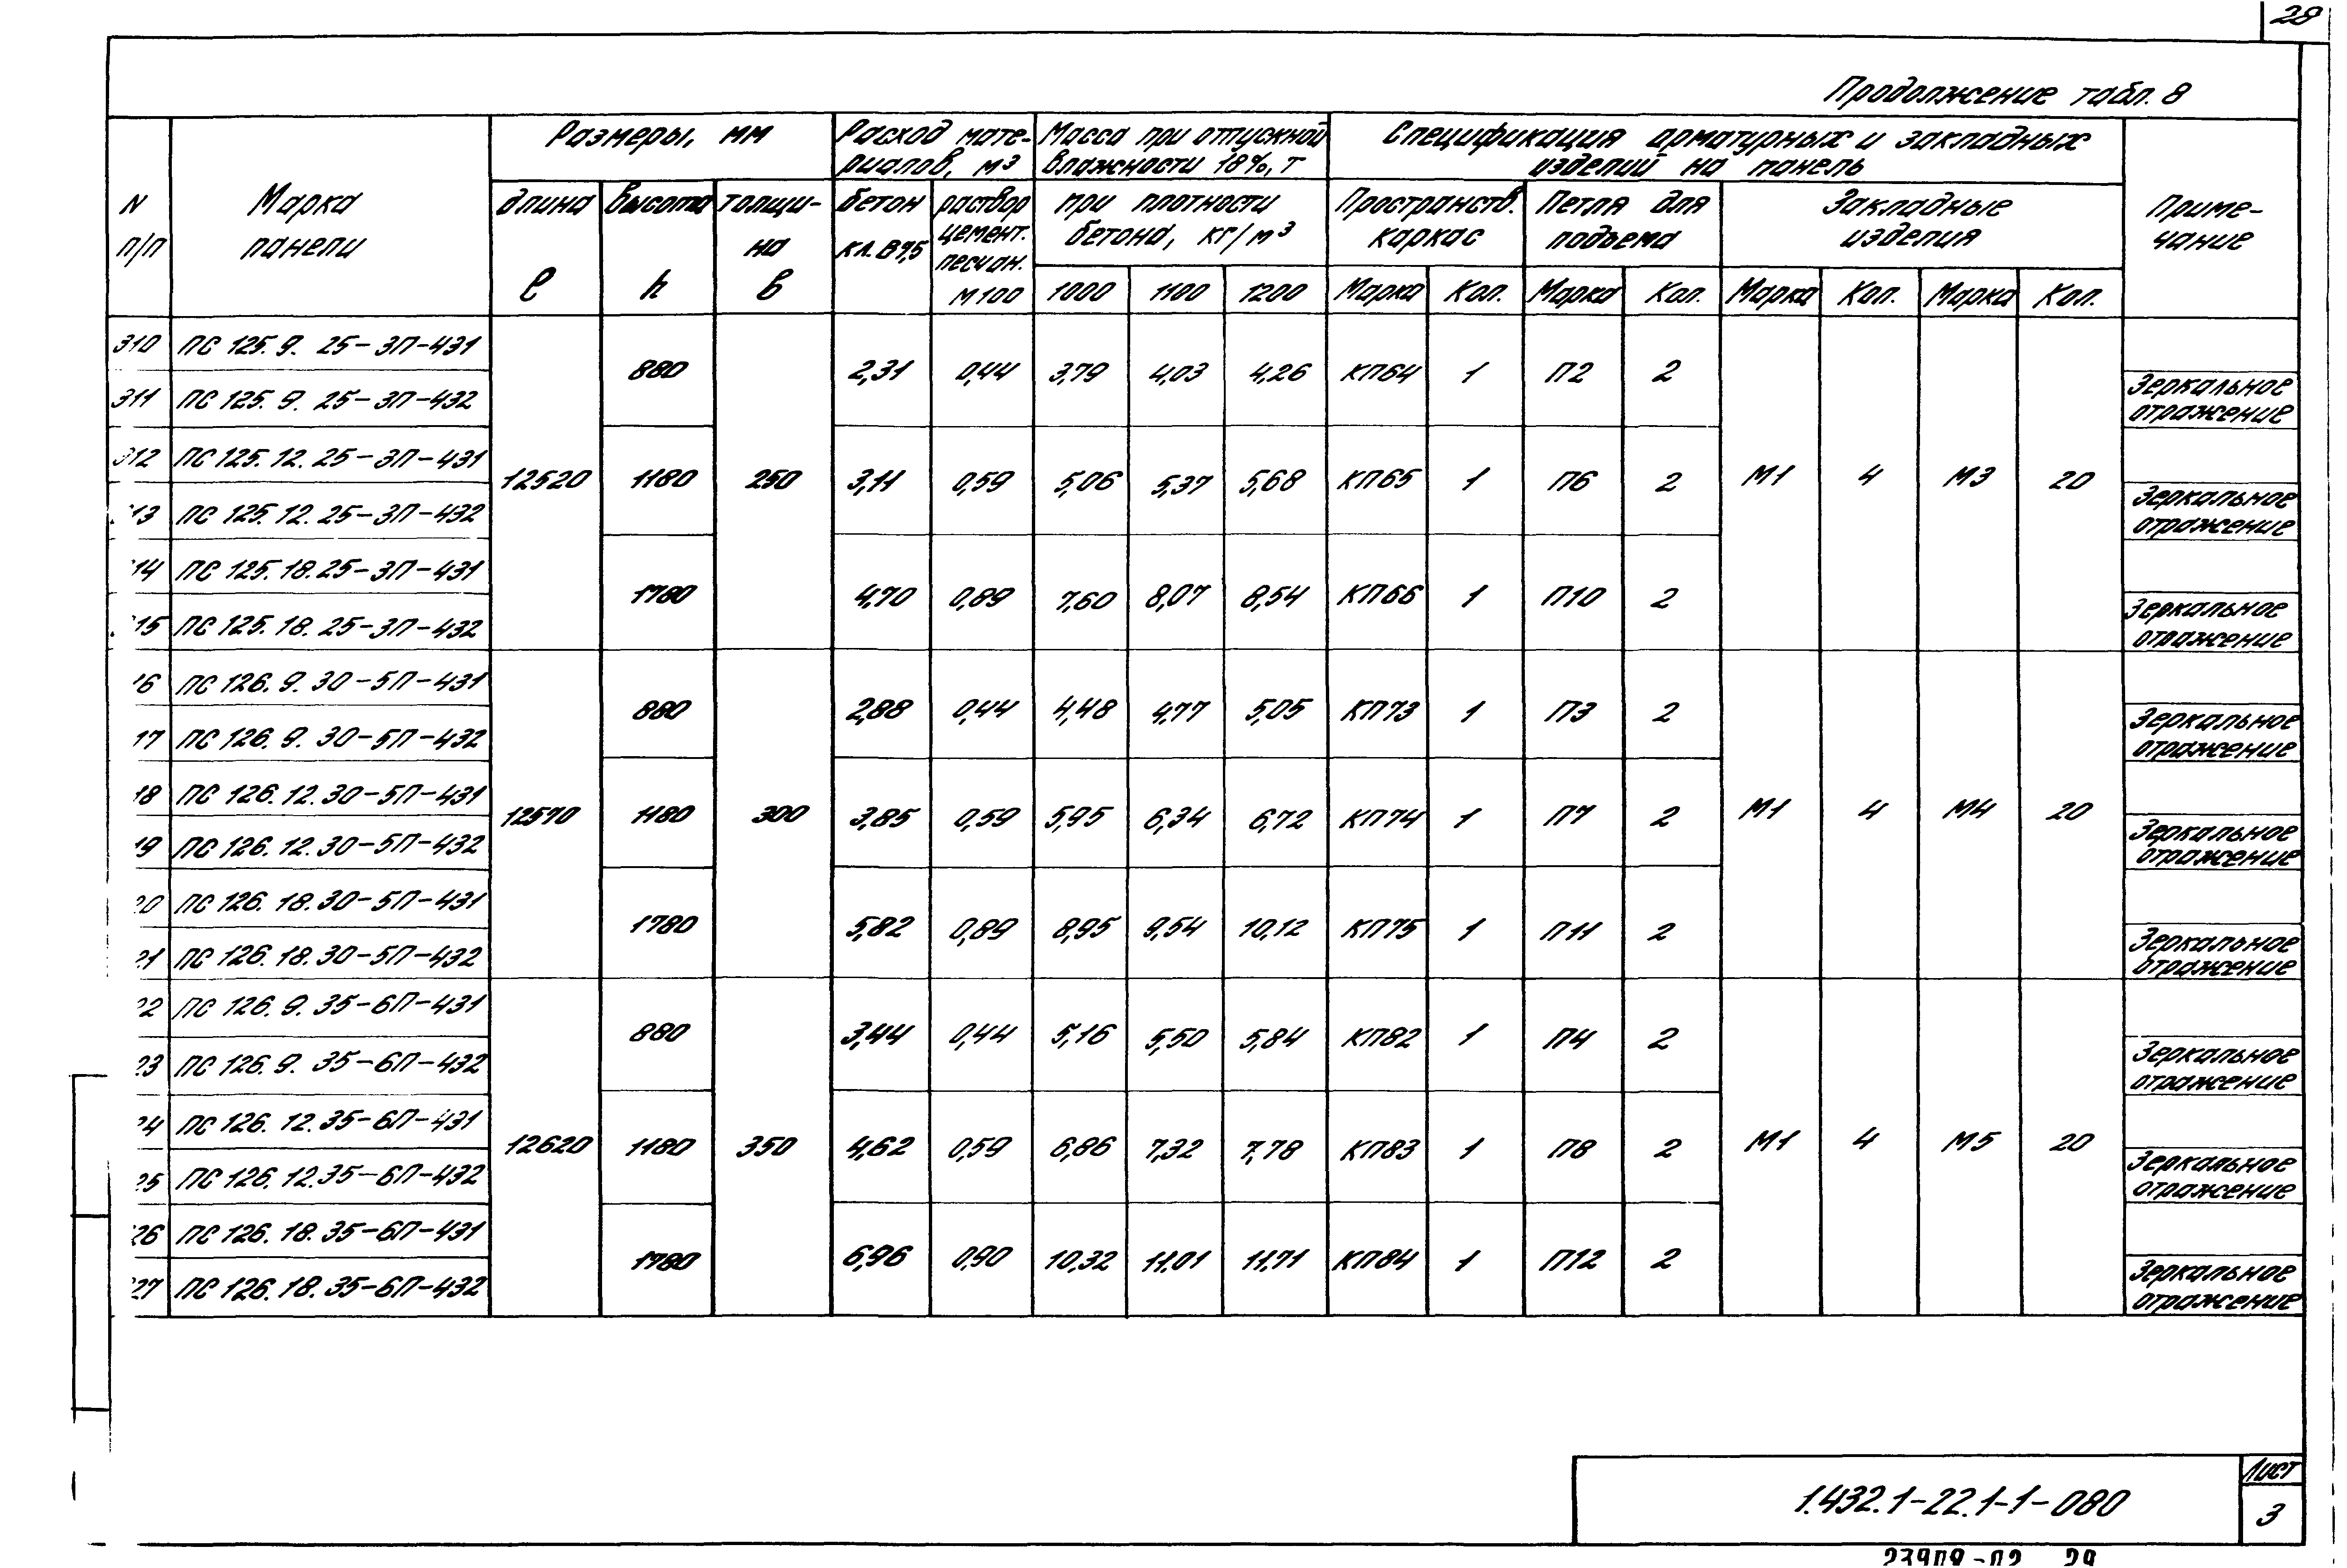 28
Продолжение табл. 8
N п/п
Марка панели
Размеры, мм
длина l
высота h
толщи- на b
Расход мате- риалов, м³
бетон кл. В 7,5
раствор цемент. песчан. М100
Масса при отпускной влажности 18%, т
при плотности бетона, кг/м³
1000 1100 1200
Спецификация арматурных и закладных изделий на панель
Пространств. каркас
Петля для подъема
Закладные изделия
Марка Кол. Марка Кол. Марка Кол. Марка Кол.
Приме- чание
310 ПС 125. 9. 25-3П-431
880 2,31 0,44 3,79 4,03 4,26 КП64 1 П2 2
311 ПС 125. 9. 25-3П-432 Зеркальное отражение
312 ПС 125. 12. 25-3П-431
12520 1180 250 3,11 0,59 5,06 5,37 5,68 КП65 1 П6 2 М1 4 М3 20
13 ПС 125. 12. 25-3П-432 Зеркальное отражение
14 ПС 125. 18. 25-3П-431
1780 4,70 0,89 7,60 8,07 8,54 КП66 1 П10 2
15 ПС 125. 18. 25-3П-432 Зеркальное отражение
16 ПС 126. 9. 30-5П-431
880 2,88 0,44 4,48 4,77 5,05 КП73 1 П3 2
17 ПС 126. 9. 30-5П-432 Зеркальное отражение
18 ПС 126. 12. 30-5П-431
12570 1180 300 3,85 0,59 5,95 6,34 6,72 КП74 1 П7 2 М1 4 М4 20
19 ПС 126. 12. 30-5П-432 Зеркальное отражение
20 ПС 126. 18. 30-5П-431
1780 5,82 0,89 8,95 9,54 10,12 КП75 1 П11 2
21 ПС 126. 18. 30-5П-432 Зеркальное отражение
22 ПС 126. 9. 35-6П-431
880 3,44 0,44 5,16 5,50 5,84 КП82 1 П4 2
23 ПС 126. 9. 35-6П-432 Зеркальное отражение
24 ПС 126. 12. 35-6П-431
12620 1180 350 4,62 0,59 6,86 7,32 7,78 КП83 1 П8 2 М1 4 М5 20
25 ПС 126. 12. 35-6П-432 Зеркальное отражение
26 ПС 126. 18. 35-6П-431
1780 6,96 0,90 10,32 11,01 11,71 КП84 1 П12 2
27 ПС 126. 18. 35-6П-432 Зеркальное отражение
1.432.1-22.1-1-080
Лист
3
23909-02 29